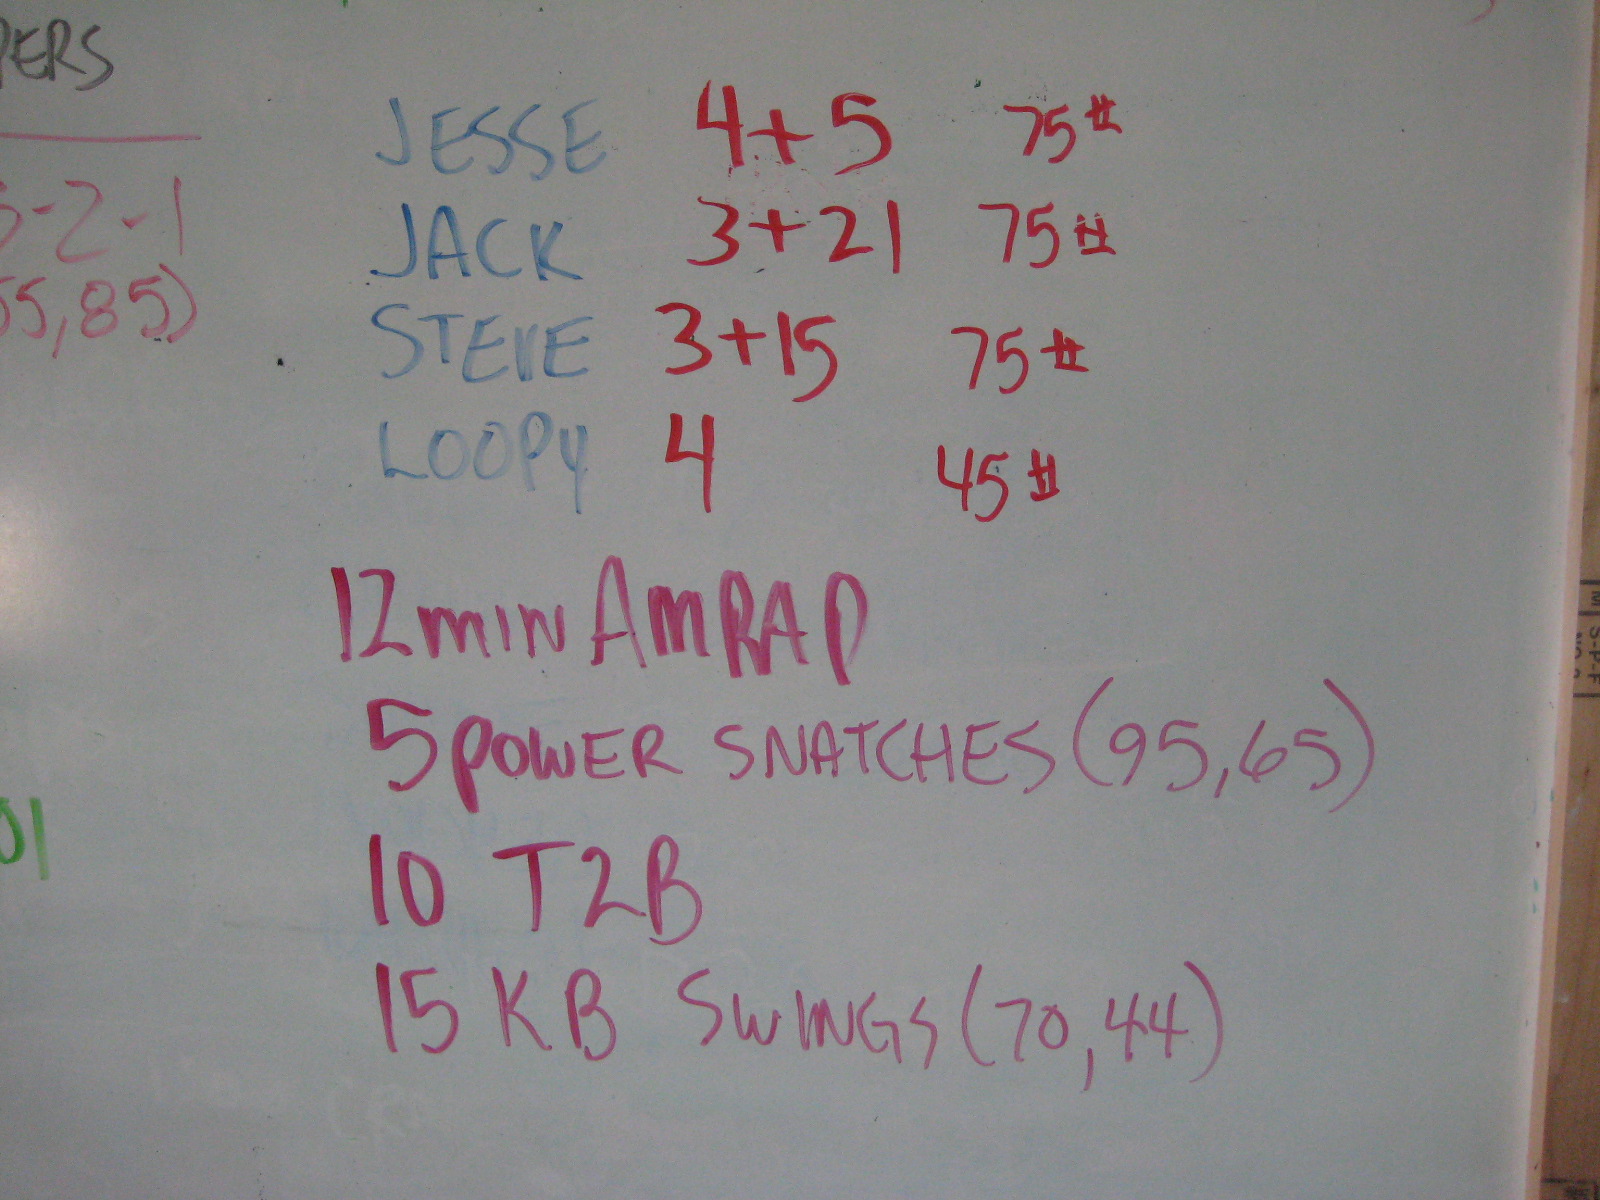 JESSE 4+5 75#
JACK 3+21 75#
STEVE 3+15 75#
LOOPY 4 45#
12 min AMRAP
5 POWER SNATCHES (95,65)
10 T2B
15 KB SWINGS (70,44)
PERS
-2-1
5,85)
01